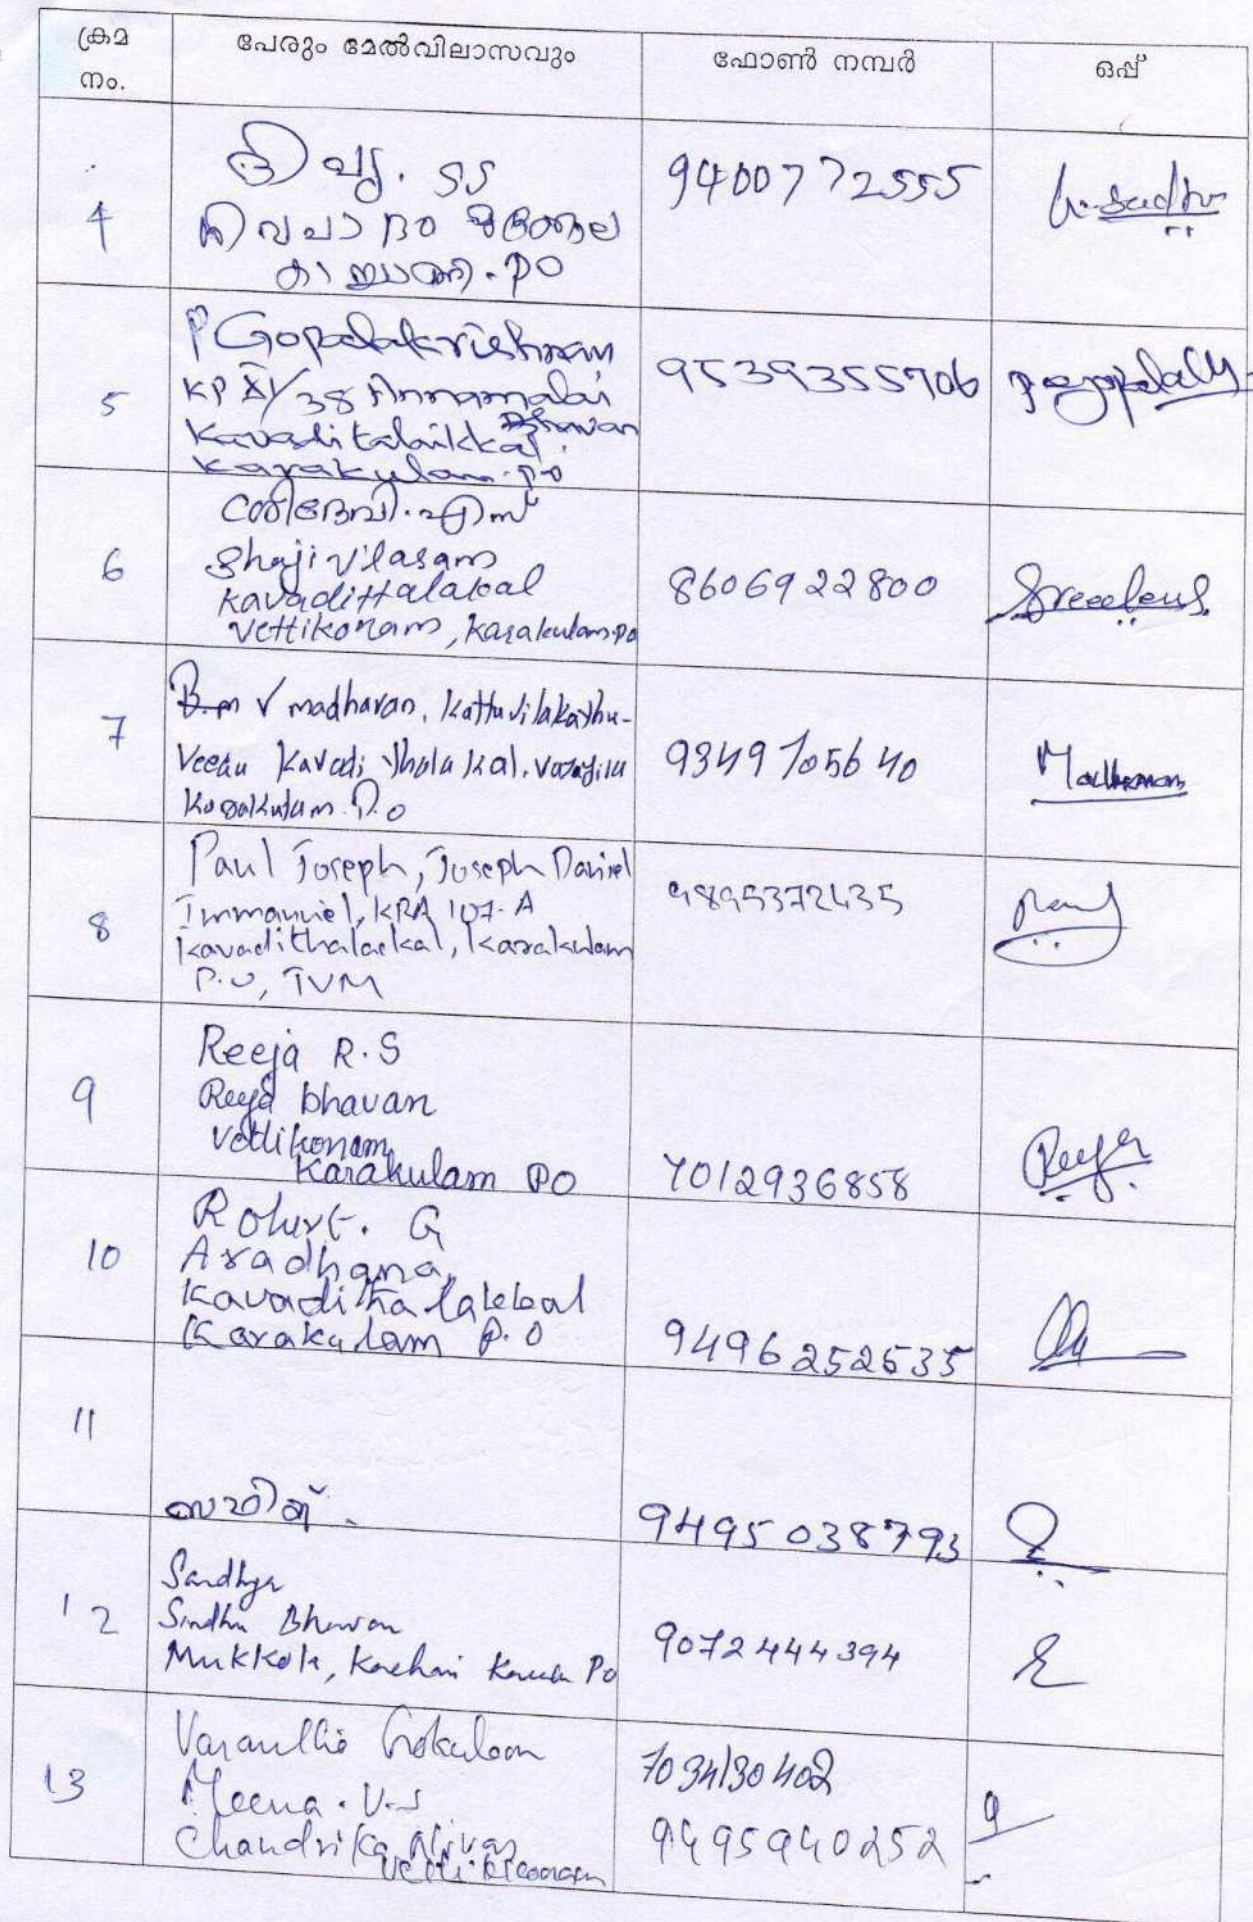 ക്രമ നം. പേരും മേൽവിലാസവും ഫോൺ നമ്പർ ഒപ്പ്
4
ദിപു. SS
PO
9400772555
5
P Gopalakrishnan
KP XI/38 Annamalai
Bhavan
Kavaditalaikkal
Karakulam. PO
9539355706
6
ശ്രീദേവി. എസ്
Shaji vilasam
Kavadittalakal
Vettikonam, Karakulam. PO
8606922800
7
V madharan, Kattuvilakathu-
Veedu Kavadi thalakal, Vazhayila
Karakulam P.O
9349705640
Madhavan
8
Paul Joseph, Joseph Daniel
Immanuiel, KRA 107-A
Kavadithalackal, Karakulam
P.O, TVM
9895372435
Paul
9
Reeja R.S
Reeja bhavan
Vettikonam
Karakulam PO
7012936858
Reeja
10
Robert. G
Aradhana
Kavaditha lakkal
Karakulam P.O
9496252535
11
9495038793
12
Sandhya
Sindhu Bhavan
Mukkola, Kachani Po
9072444394
13
Gokulam
Meena. V.S
Chandrika Nivas
7034130402
9495940252